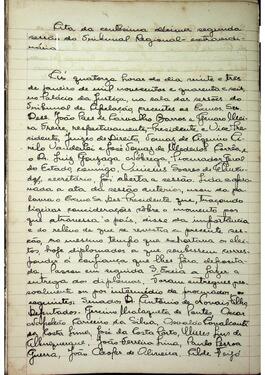 Acta da centesima decima segunda
sessão do Tribunal Regional extraordi-
naria
Ás quatorze horas do dia vinte e tres
de janeiro de mil novecentos e quarenta e seis,
no Palacio da Justiça, na sala das sessões do
Tribunal de Apelação presentes os Exmos. Srs.
Des. João Paes de Carvalho Barros e
Freire, respectivamente Presidente e Vice Pre-
sidente, Juizes de Direito, Tomaz de Aquino
e José Tomaz de Medeiros Correia
e Dr. Luis Gonzaga Procurador Geral
do Estado, comigo, Soares de
secretario, foi aberta a sessão. Lida e apro-
vada a ata da sessão anterior, usou da pa-
lavra o Exmo. Sr. Des. Presidente que, traçando
ligeiras considerações sobre o momento por
que atravessa o país, disse da importancia
e do relevo de que se revestia a presente ses-
são, ao mesmo tempo que exhortava os elei-
tos, hoje diplomados a que soubessem corres-
ponder á confiança que lhes fôra deposita-
da. Passou em seguida S. Excia. a fazer a
entrega dos diplomas. Foram entregues pes-
soalmente ou por intermedio de procurador os
seguintes: Senador Dr. Antonio de Novaes Filho
Deputados: Gercino Malagueta de Pontes, Oscar
Carneiro da Silva, Osvaldo Cavalcanti
da Costa Lima, José da Costa Porto, Ulisses Lins de
Albuquerque, João Ferreira Lima, Paulo Pessoa
Guerra, João Cleofas de Oliveira, Alde Feijó